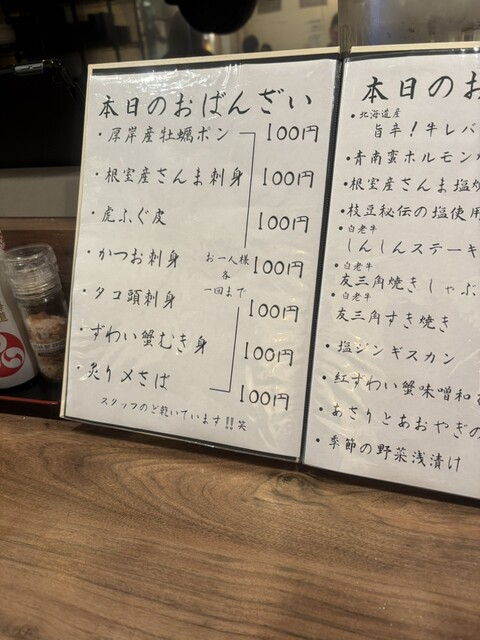 本日のおばんざい
・厚岸産牡蠣ポン 100円
・根室産さんま刺身 100円
・虎ふぐ皮 100円
・かつお刺身 100円
・タコ頭刺身 100円
・ずわい蟹むき身 100円
・炙り〆さば 100円
お一人様
各
一回まで
スタッフのど乾いています!!笑
本日のお
・北海道産
旨辛!牛レバ
・青南蛮ホルモン
・根室産さんま塩焼
・枝豆秘伝の塩使用
・白老牛
しんしんステーキ
・白老牛
友三角焼きしゃぶ
・白老牛
友三角すき焼き
・塩ジンギスカン
・紅ずわい蟹味噌和
・あさりとあおやぎの
・季節の野菜浅漬け